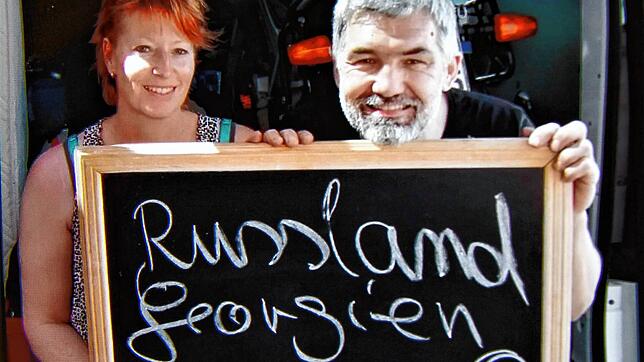 Russland
Georgien